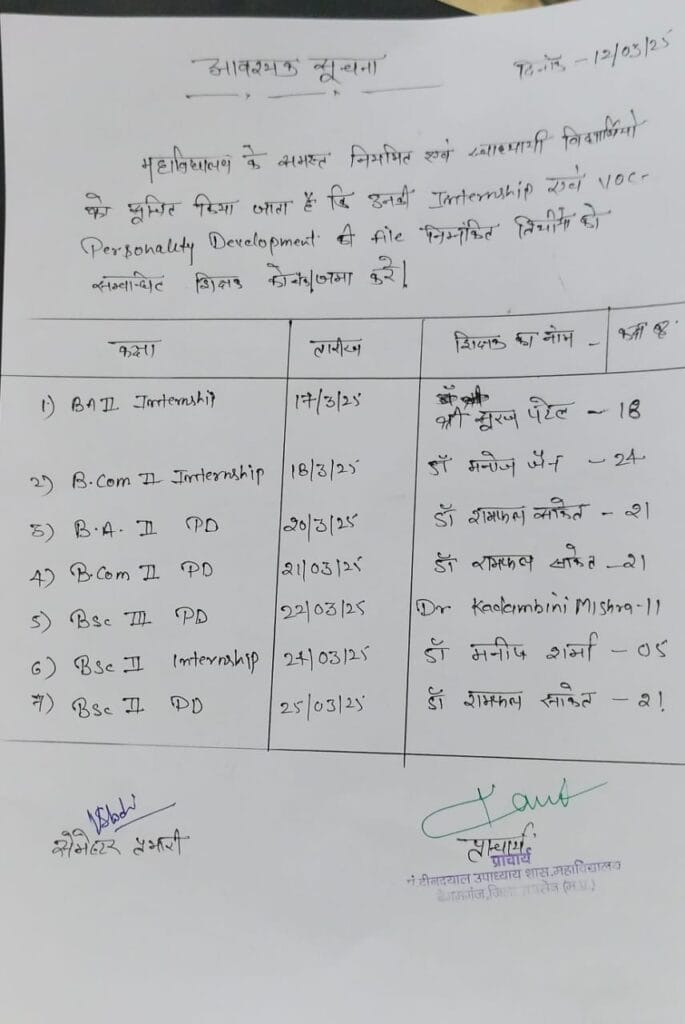 आवश्यक सूचना
दिनाँक - 12/03/25
महाविद्यालय के समस्त नियमित एवं स्वाध्यायी विद्यार्थियो
को सूचित किया जाता है कि उनकी Internship एवं VOC-
Personality Development की file निम्नांकित तिथीयों को
सम्बन्धित शिक्षक को जमा करें।
कक्षा तारीख शिक्षक का नाम - कक्ष क्र.
1) BA II Internship 17/3/25 श्री सूरज पटेल - 18
2) B.Com II Internship 18/3/25 डॉ मनोज जैन - 24
3) B.A. II PD 20/3/25 डॉ रामफल साकेत - 21
4) B.Com II PD 21/03/25 डॉ रामफल साकेत - 21
5) BSc III PD 22/03/25 Dr Kadambini Mishra - 11
6) BSc II Internship 24/03/25 डॉ मनीष शर्मा - 05
7) BSc II PD 25/03/25 डॉ रामफल साकेत - 21
सेमेस्टर प्रभारी
प्राचार्य
प्राचार्य
पं.दीनदयाल उपाध्याय शास.महाविद्यालय
बेगमगंज,जिला रायसेन (म.प्र.)